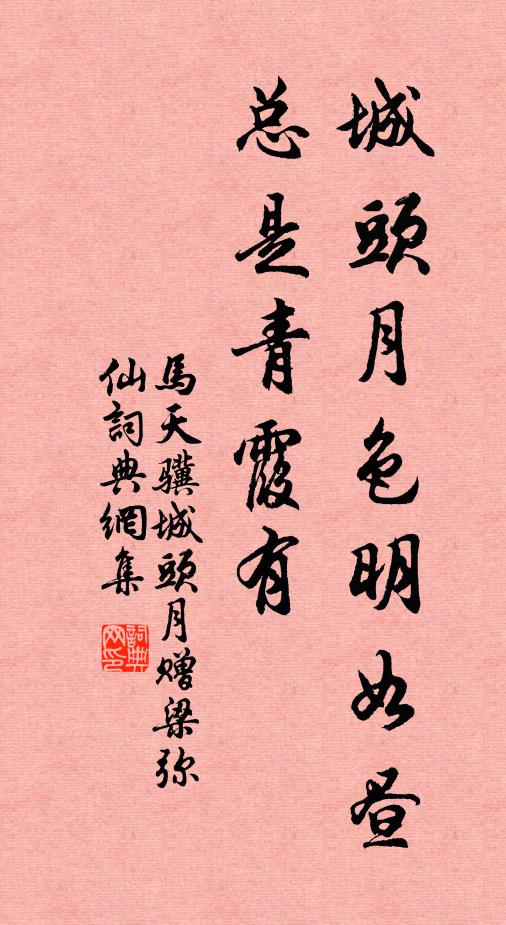 城頭月色明如昼
总是青霞有
馬天骥城頭月赠梁弥
仙詞典網集
詞典网印